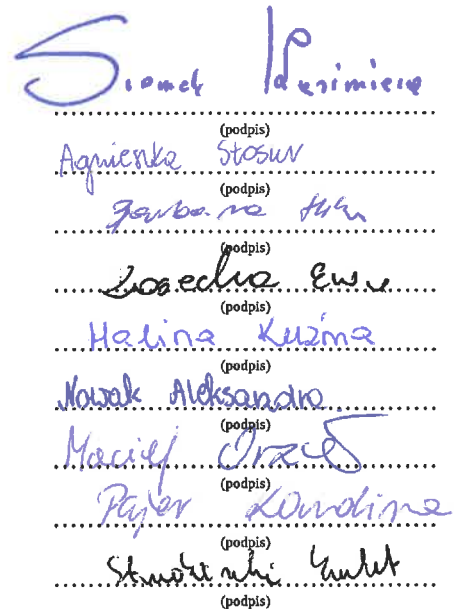 Kazimierz
(podpis)
Agnieszka Stosur
(podpis)
Barbara
(podpis)
Ewa
(podpis)
Halina Kuźma
(podpis)
Nowak Aleksandra
(podpis)
Maciej Orzeł
(podpis)
Pajer Karolina
(podpis)
(podpis)